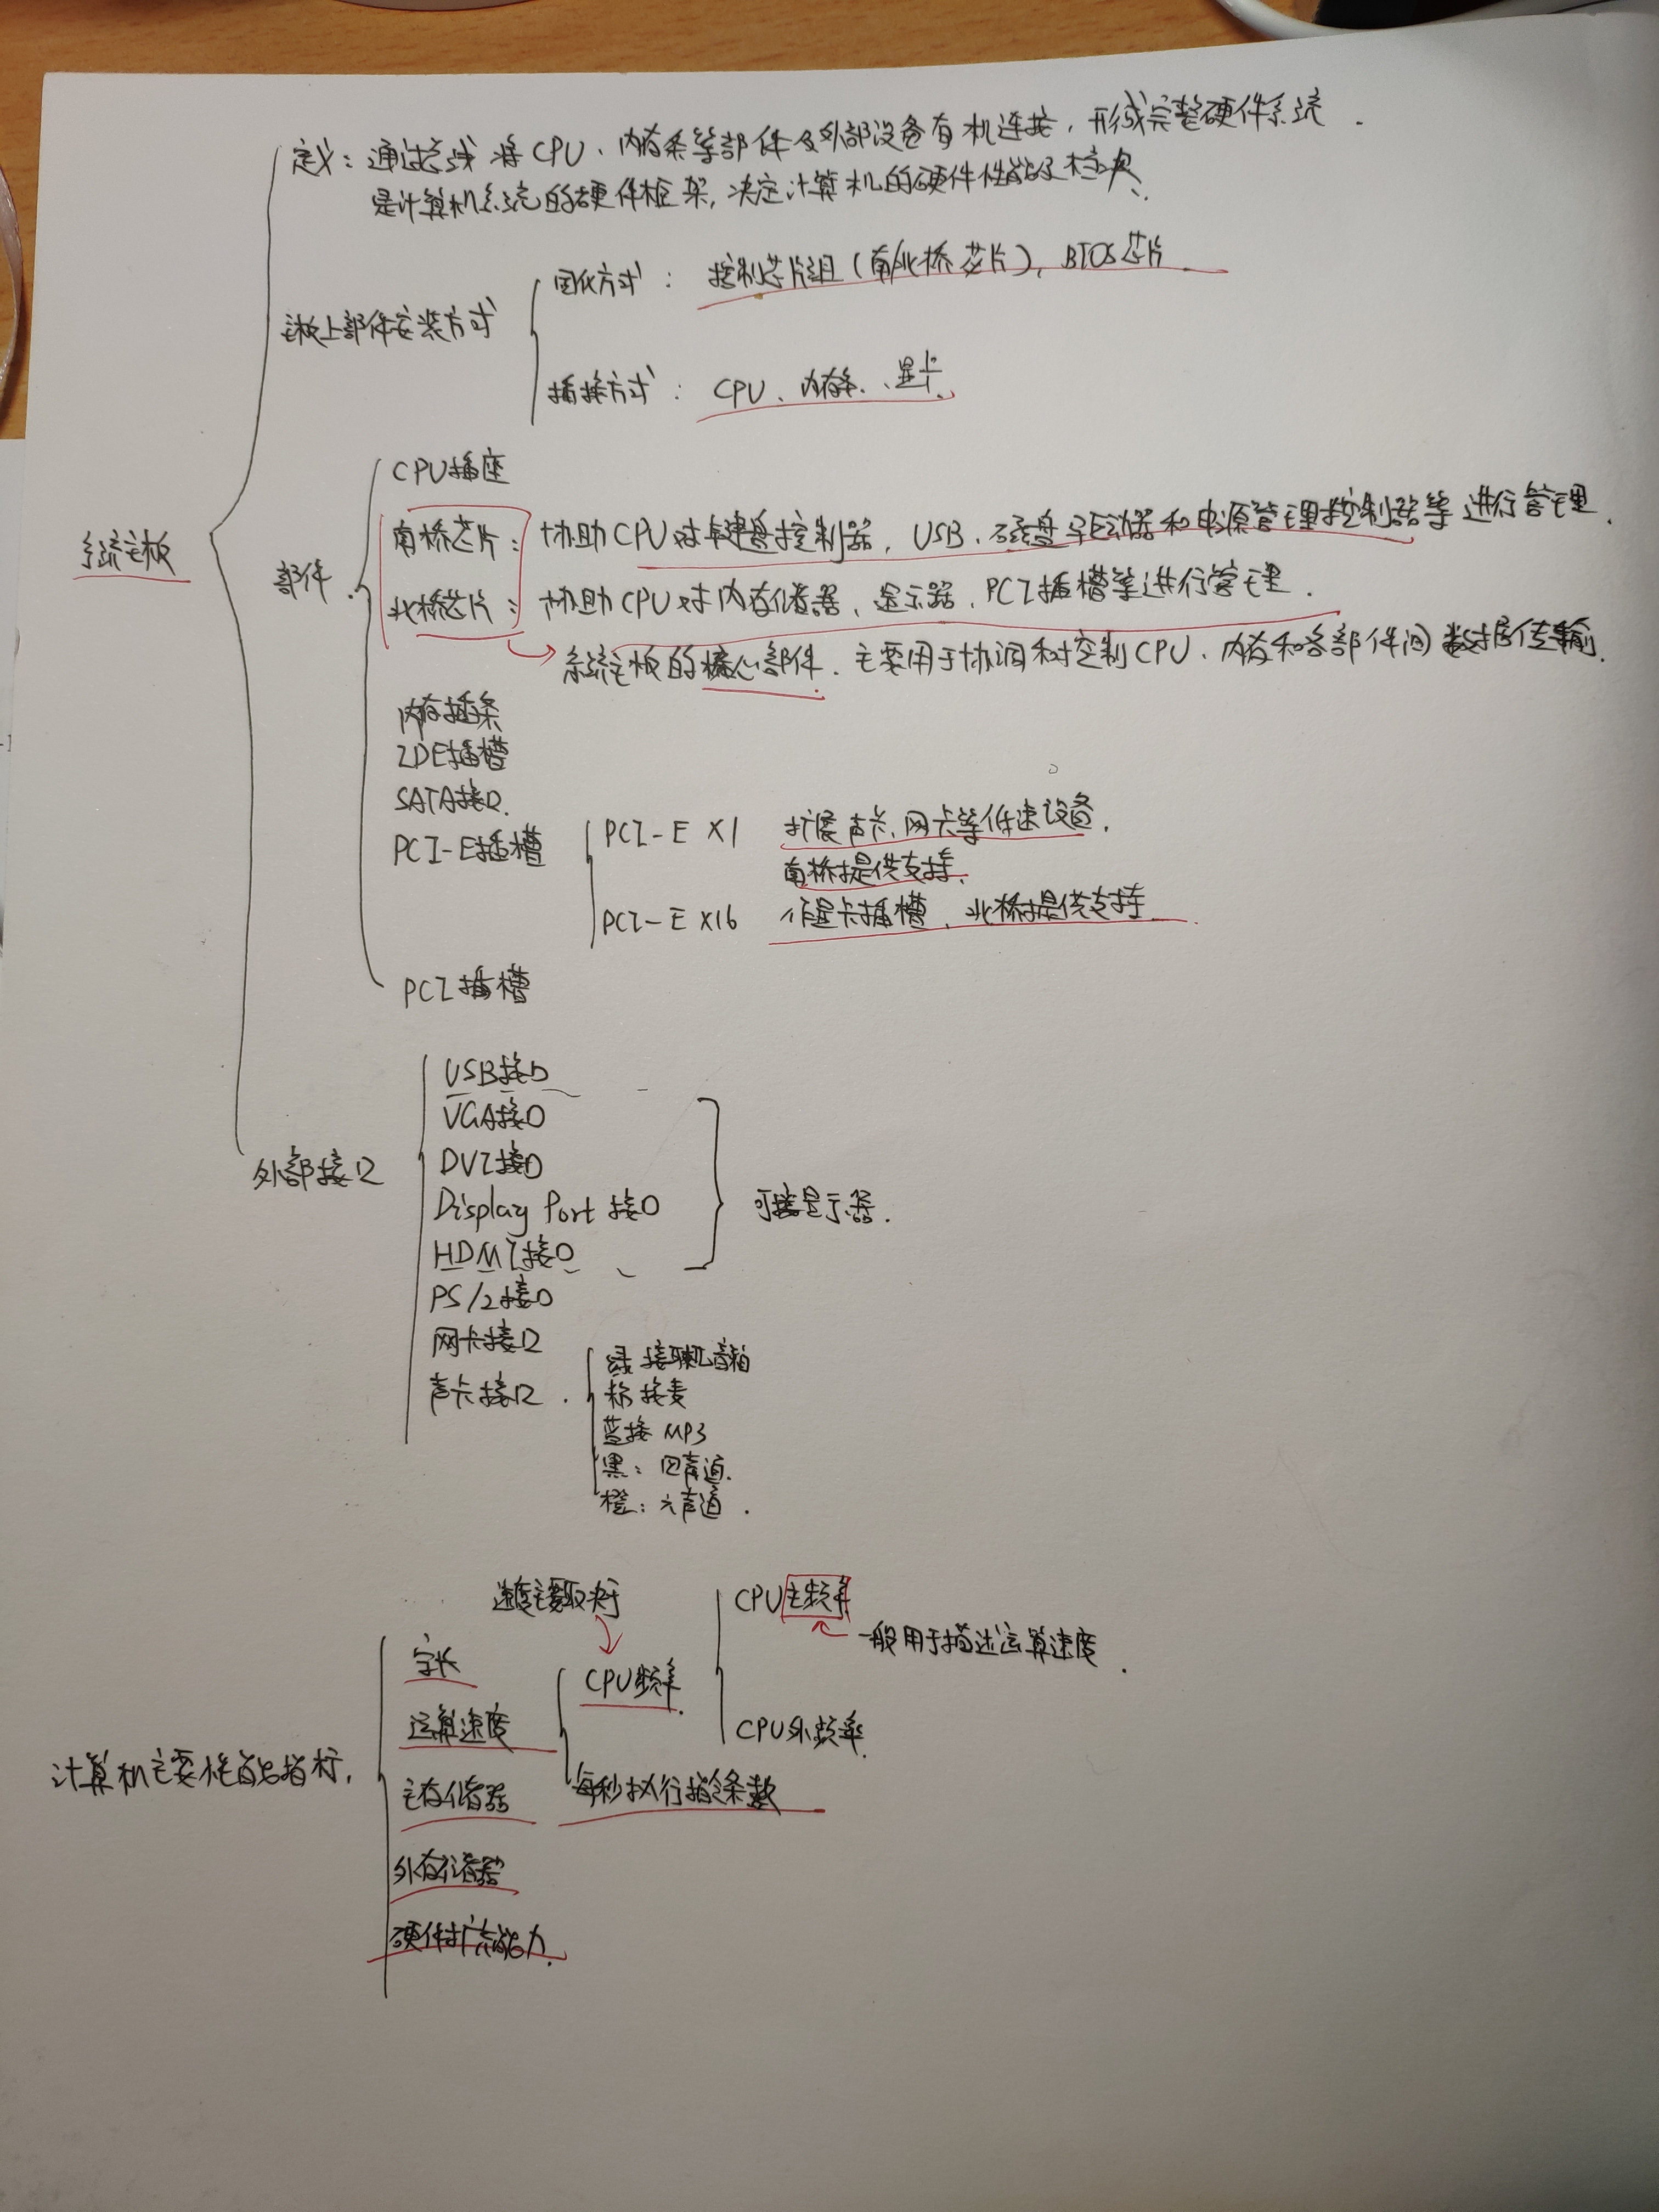 定义：通过总线将CPU、内存条等部件及外部设备有机连接，形成完整硬件系统．
是计算机系统的硬件框架，决定计算机的硬件性能及档次．
主板上部件安装方式
固化方式：控制芯片组（南/北桥芯片），BIOS芯片
插接方式：CPU、内存条、显卡．
系统主板
部件．
CPU插座
南桥芯片：协助CPU对键盘控制器，USB、磁盘驱动器和电源管理控制器等进行管理．
北桥芯片：协助CPU对内存储器，显示器，PCI插槽等进行管理．
系统主板的核心部件．主要用于协调和控制CPU、内存和各部件间数据传输．
内存插条
IDE插槽
SATA接口．
PCI-E插槽
PCI-E ×1 扩展声卡、网卡等低速设备，
南桥提供支持．
PCI-E ×16 作显卡插槽，北桥提供支持
PCI插槽
外部接口
USB接口
VGA接口
DVI接口
Display Port 接口
HDMI接口
可接显示器．
PS/2接口
网卡接口
声卡接口．
绿接耳机音箱
粉接麦
蓝接MP3
黑：四声道．
橙：六声道．
计算机主要性能指标，
字长
运算速度
速度主要取决于
CPU频率．
CPU主频率
一般用于描述运算速度．
CPU外频率．
每秒执行指令条数
主存储器
外存储器
硬件扩展能力．